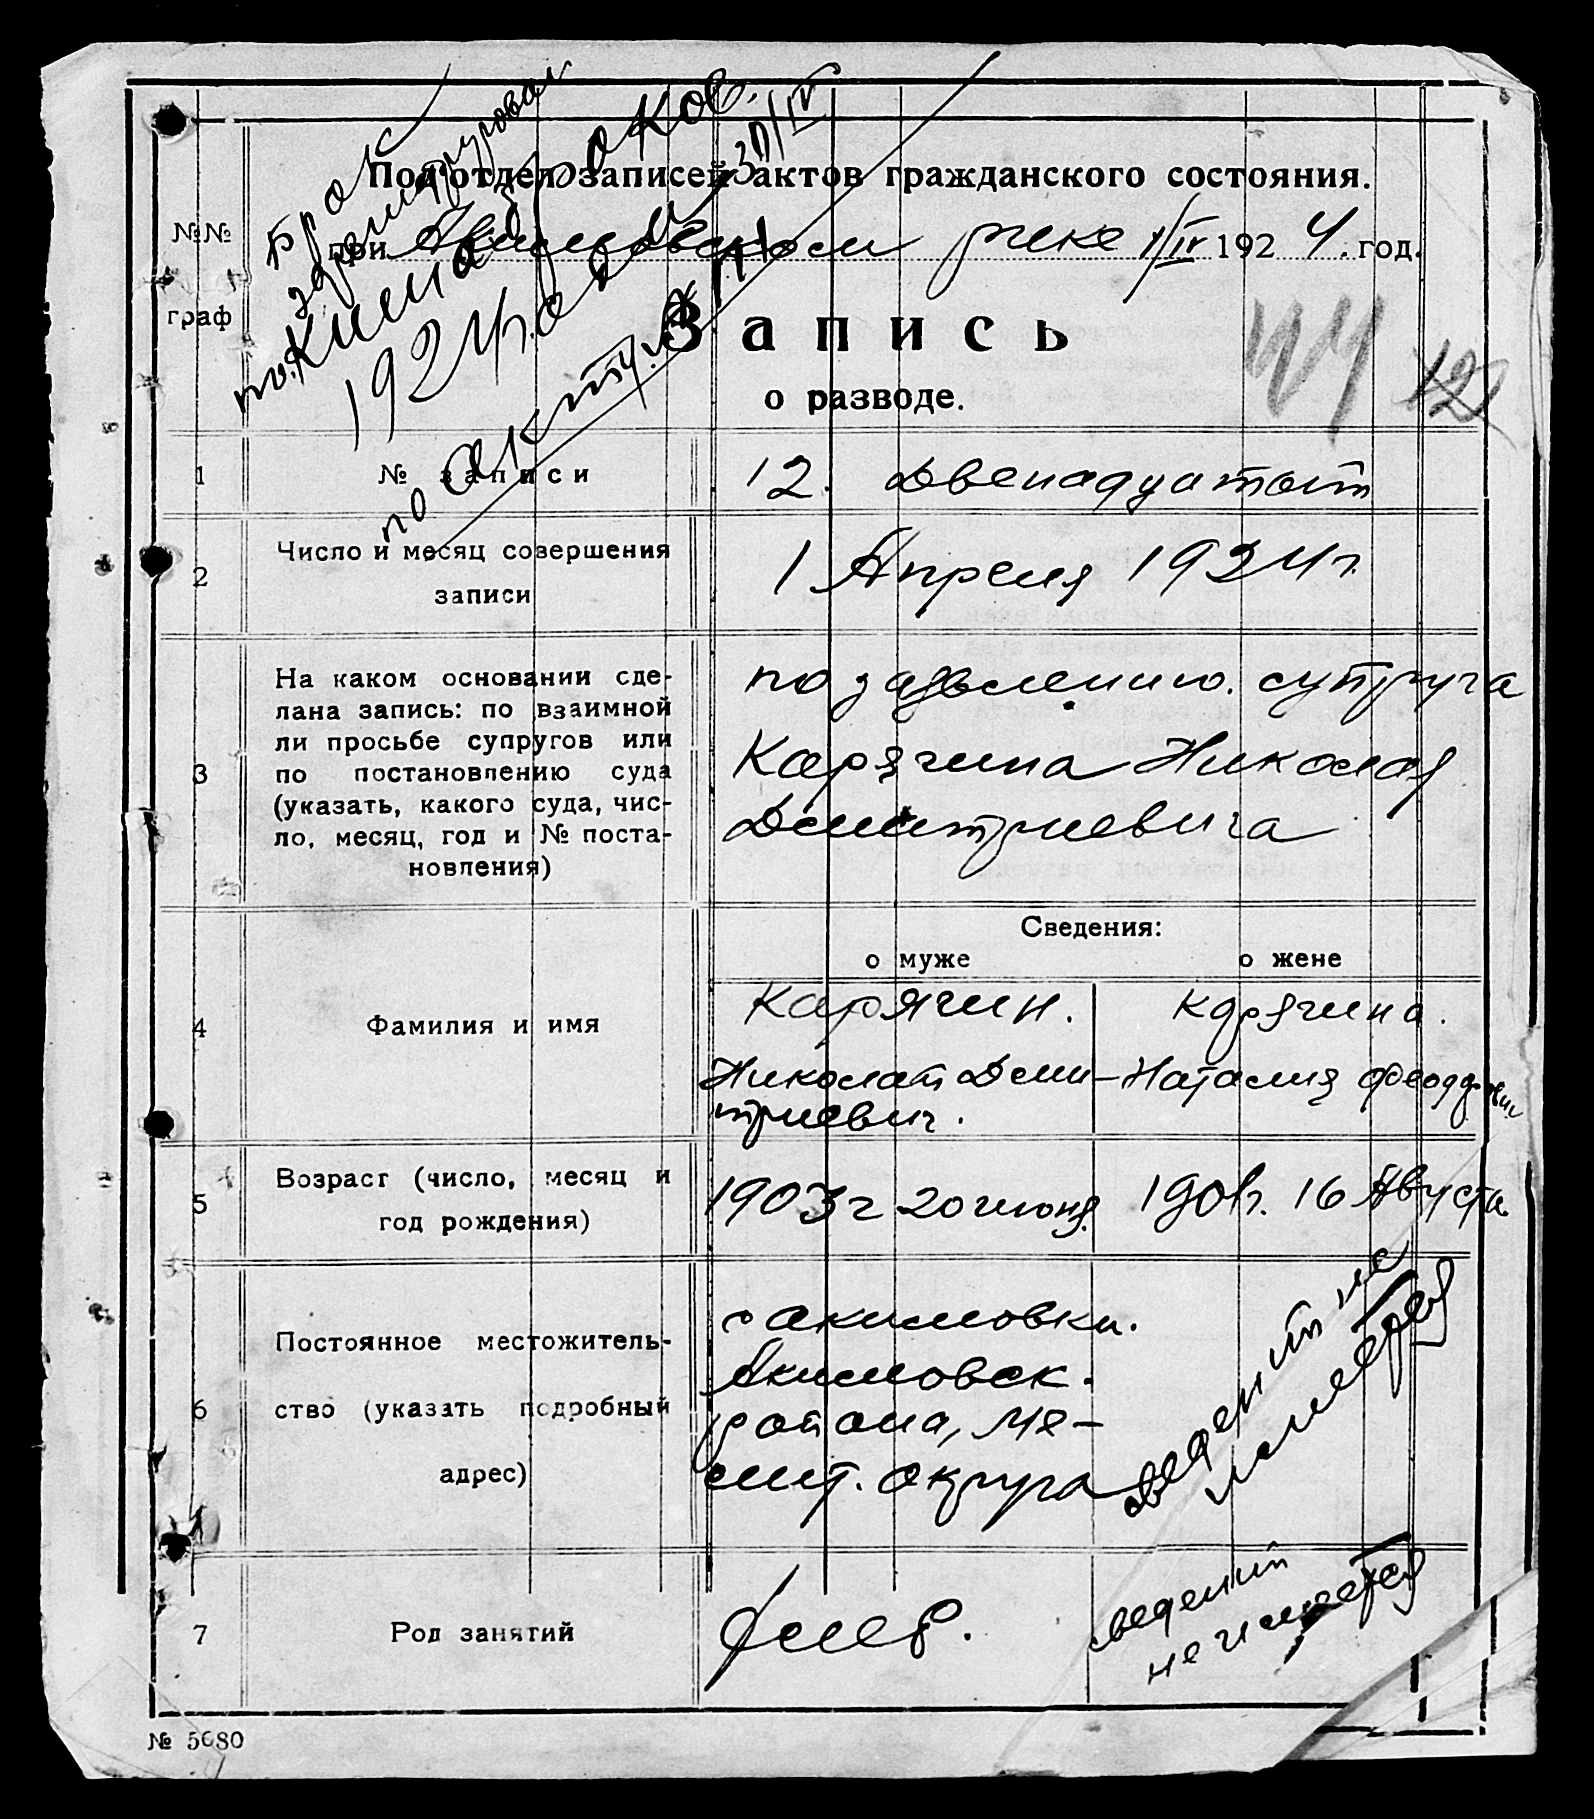 Брак
Подотдел записей актов гражданского состояния.
№№
граф
при Акимовском рике 1/IV 1924. год.
30/IV
1924г.
по акту
Запись
о разводе.
12
1
№ записи
12. Двенадцатый
2
Число и месяц совершения
записи
1 Апреля 1924г.
3
На каком основании сде-
лана запись: по взаимной
ли просьбе супругов или
по постановлению суда
(указать, какого суда, чис-
ло, месяц, год и № поста-
новления)
по заявлению. супруга
Карягина Николая
Дмитриевича
Сведения:
о муже
о жене
4
Фамилия и имя
Карягин.
Николай Дми-
триевич.
Карягина.
Наталия
5
Возраст (число, месяц и
год рождения)
1903г 20 июня.
1901г. 16 Августа.
6
Постоянное местожитель-
ство (указать подробный
адрес)
с Акимовки.
Акимовск.
района, Ме-
лит. округа
сведений не
имеется
7
Род занятий
сведений
не имеется
№ 5680